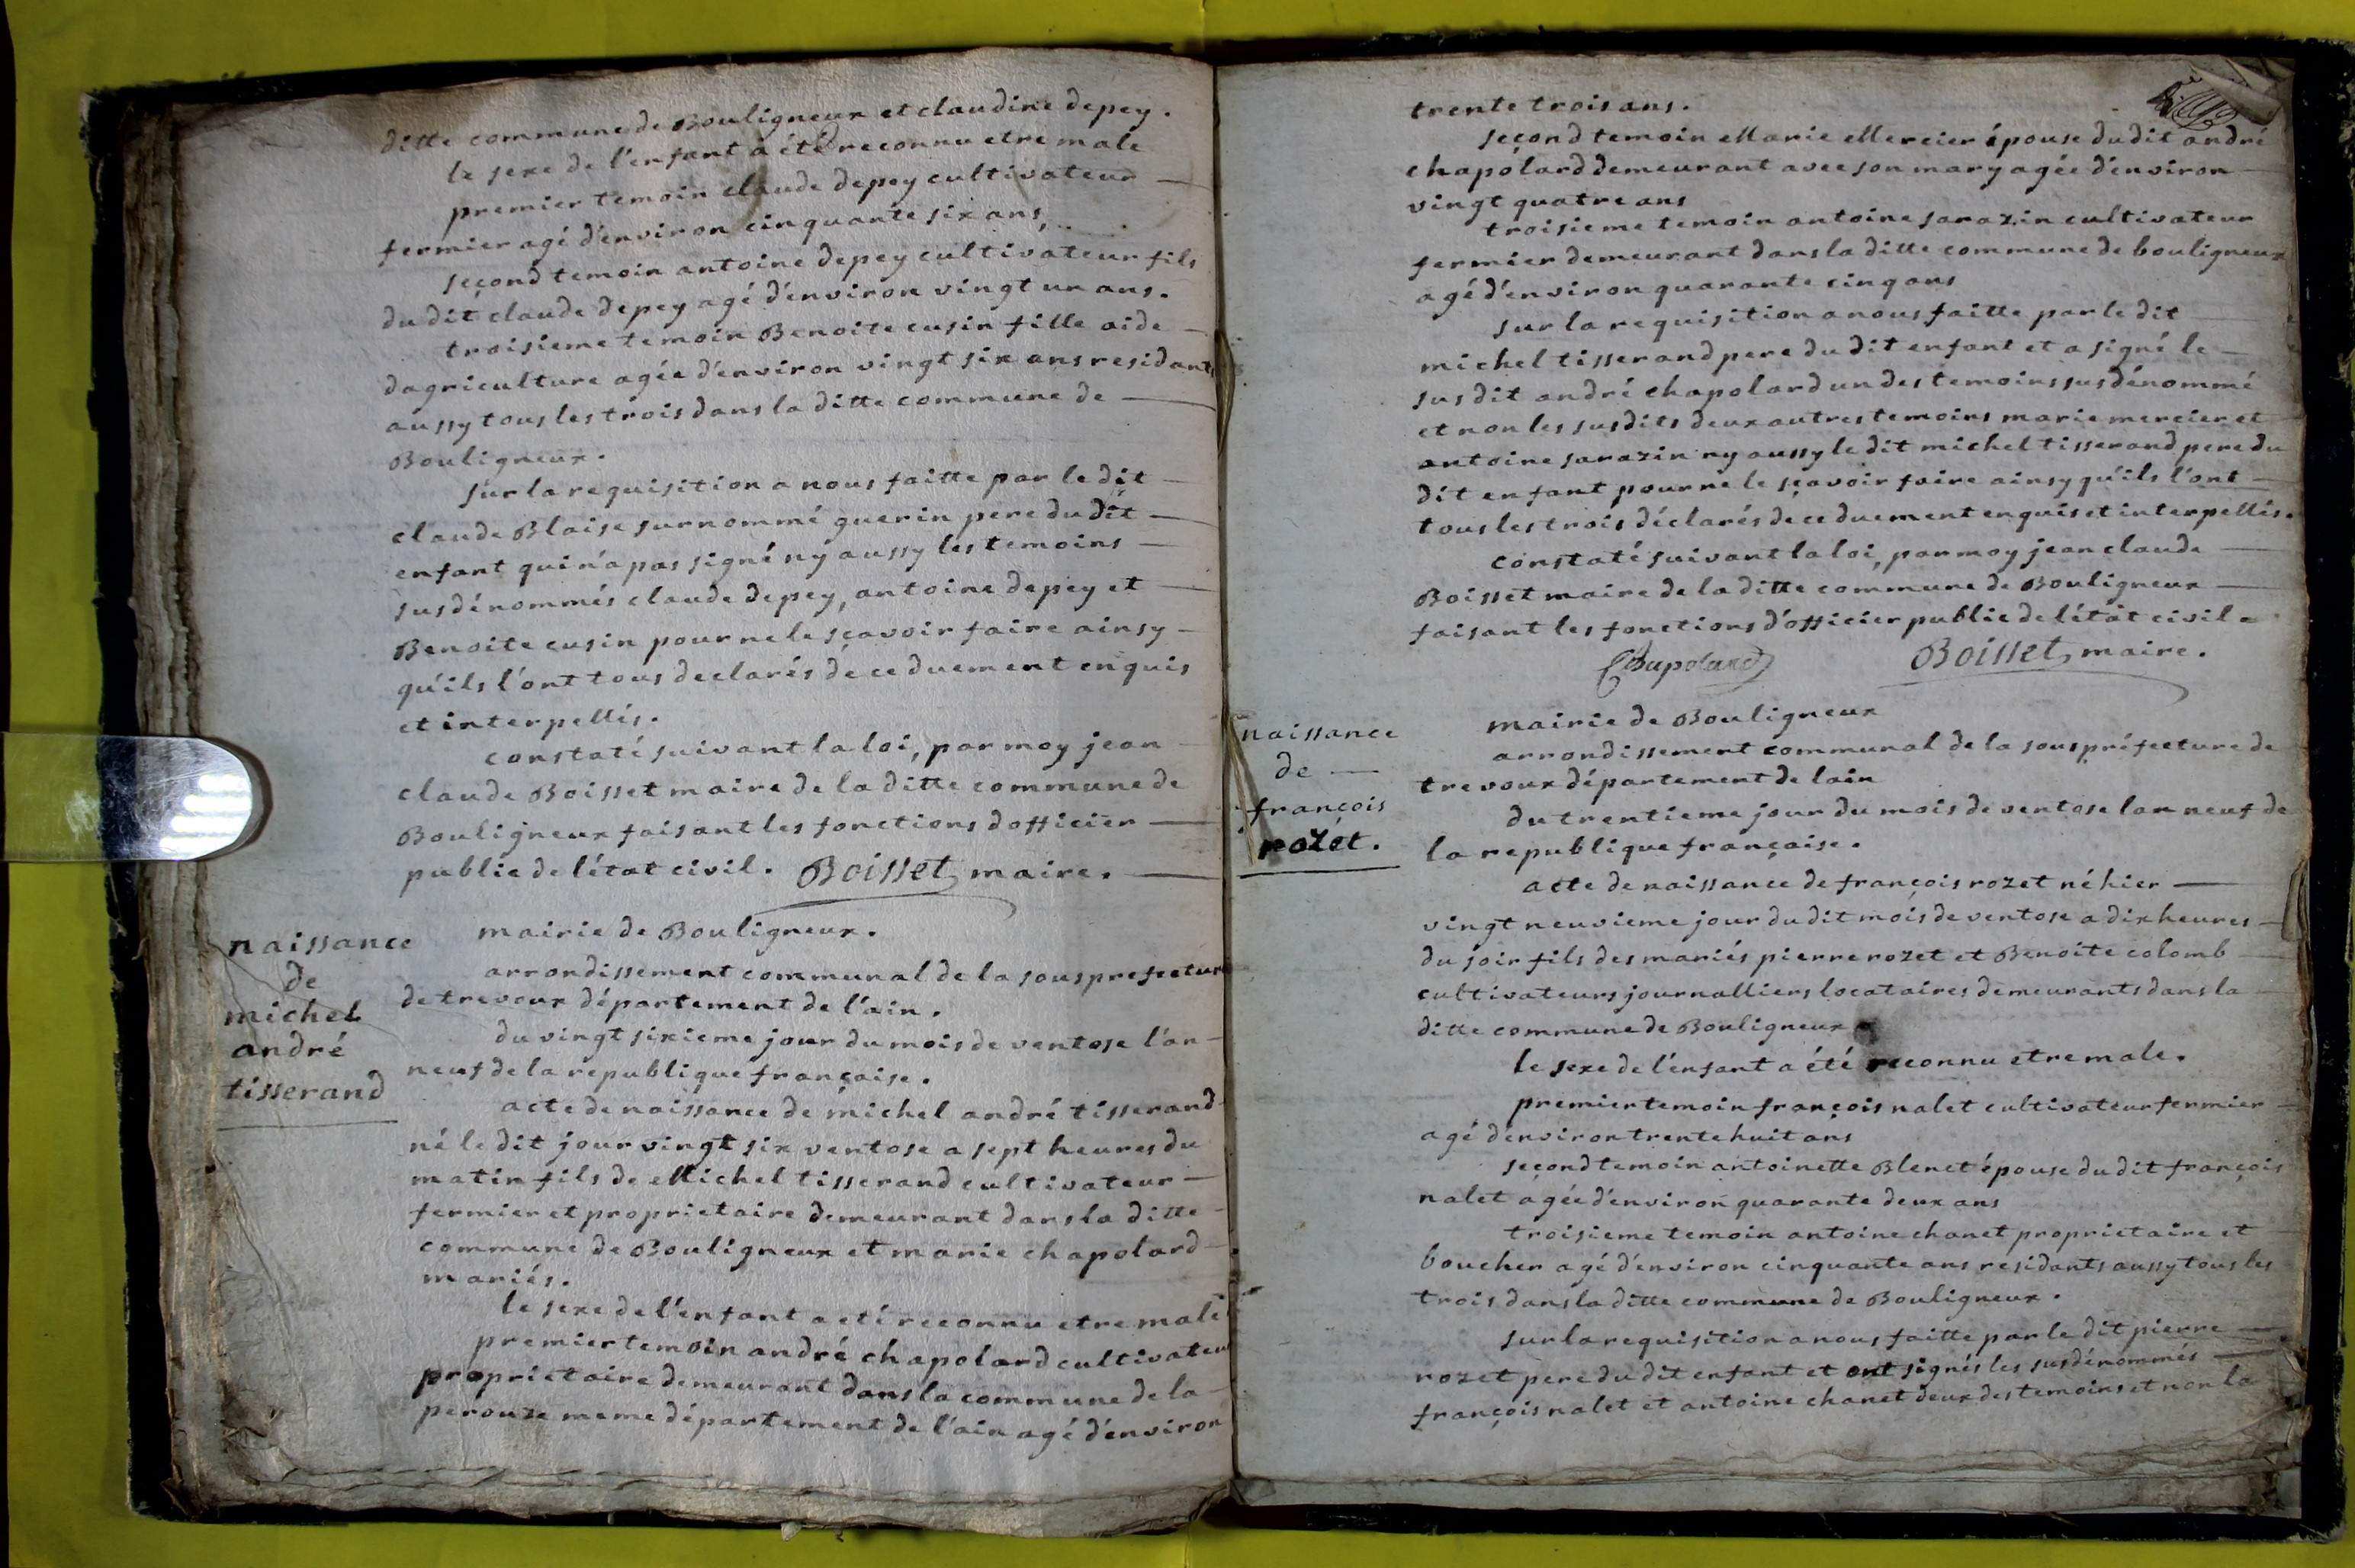 ditte commune de Bouligneux et claudine depey.
le sexe de l'enfant à été reconnu etre male
premier temoin claude depey cultivateur
fermier agé d'environ cinquante six ans,
second temoin antoine depey cultivateur fils
du dit claude depey agé d'environ vingt un ans.
troisieme temoin Benoite cusin fille aide
dagriculture agée d'environ vingt six ans residants
aussy tous les trois dans la ditte commune de
Bouligneux.
sur la requisition a nous faitte par le dit
claude Blaise surnommé guerin pere du dit
enfant qui n'a pas signé ny aussy les temoins
susdénommés claude depey, antoine depey et
Benoite cusin pour ne le sçavoir faire ainsy
qu'ils l'ont tous declarés de ce duement enquis
et interpellés.
constaté suivant la loi, par moy jean
claude Boisset maire de la ditte commune de
Bouligneux faisant les fonctions dofficier
public de l'état civil. Boisset maire.
naissance
de
michel
andré
tisserand
mairie de Bouligneux.
arrondissement communal de la sousprefecture
de trevoux département de l'ain.
du vingt sixieme jour du mois de ventose l'an
neuf de la republique française.
acte de naissance de michel andré tisserand
né le dit jour vingt six ventose a sept heures du
matin fils de Michel tisserand cultivateur
fermier et proprietaire demeurant dans la ditte
commune de Bouligneux et marie chapolard
mariés.
le sexe de l'enfant a eté reconnu etre male
premier temoin andré chapolard cultivateur
proprietaire demeurant dans la commune de la
perouze meme département de l'ain agé d'environ
trente trois ans.
second temoin Marie Mercier épouse du dit andré
chapolard demeurant avec son mary agée d'environ
vingt quatre ans
troisieme temoin antoine sarazin cultivateur
fermier demeurant dans la ditte commune de bouligneux
agé d'environ quarante cinq ans
sur la requisition a nous faitte par le dit
michel tisserand pere du dit enfant et a signé le
susdit andré chapolard un des temoins susdénommé
et non les susdits deux autres temoins marie mercier et
antoine sarazin ny aussy le dit michel tisserand pere du
dit enfant pour ne le sçavoir faire ainsy qu'ils l'ont
tous les trois déclarés de ce duement enquis et interpellés.
constaté suivant la loi, par moy jean claude
Boisset maire de la ditte commune de Bouligneux
faisant les fonctions d'officier public de l'état civil.
Chapolard Boisset maire.
naissance
de
françois
rozet.
mairie de Bouligneux
arrondissement communal de la souspréfecture de
trevoux département de lain
du trentieme jour du mois de ventose lan neuf de
la republique française.
acte de naissance de françois rozet né hier
vingt neuvieme jour du dit mois de ventose a dix heures
du soir fils des mariés pierre rozet et Benoite colomb
cultivateurs journalliers locataires demeurants dans la
ditte commune de Bouligneux
le sexe de l'enfant a été reconnu etre male.
premier temoin françois nalet cultivateur fermier
agé d'environ trente huit ans
second temoin antoinette Blenet épouse du dit françois
nalet agée d'environ quarante deux ans
troisieme temoin antoine chanet proprietaire et
boucher agé d'environ cinquante ans residants aussy tous les
trois dans la ditte commune de Bouligneux.
sur la requisition a nous faitte par le dit pierre
rozet pere du dit enfant et ont signés les susdénommés
françois nalet et antoine chanet deux des temoins et non la